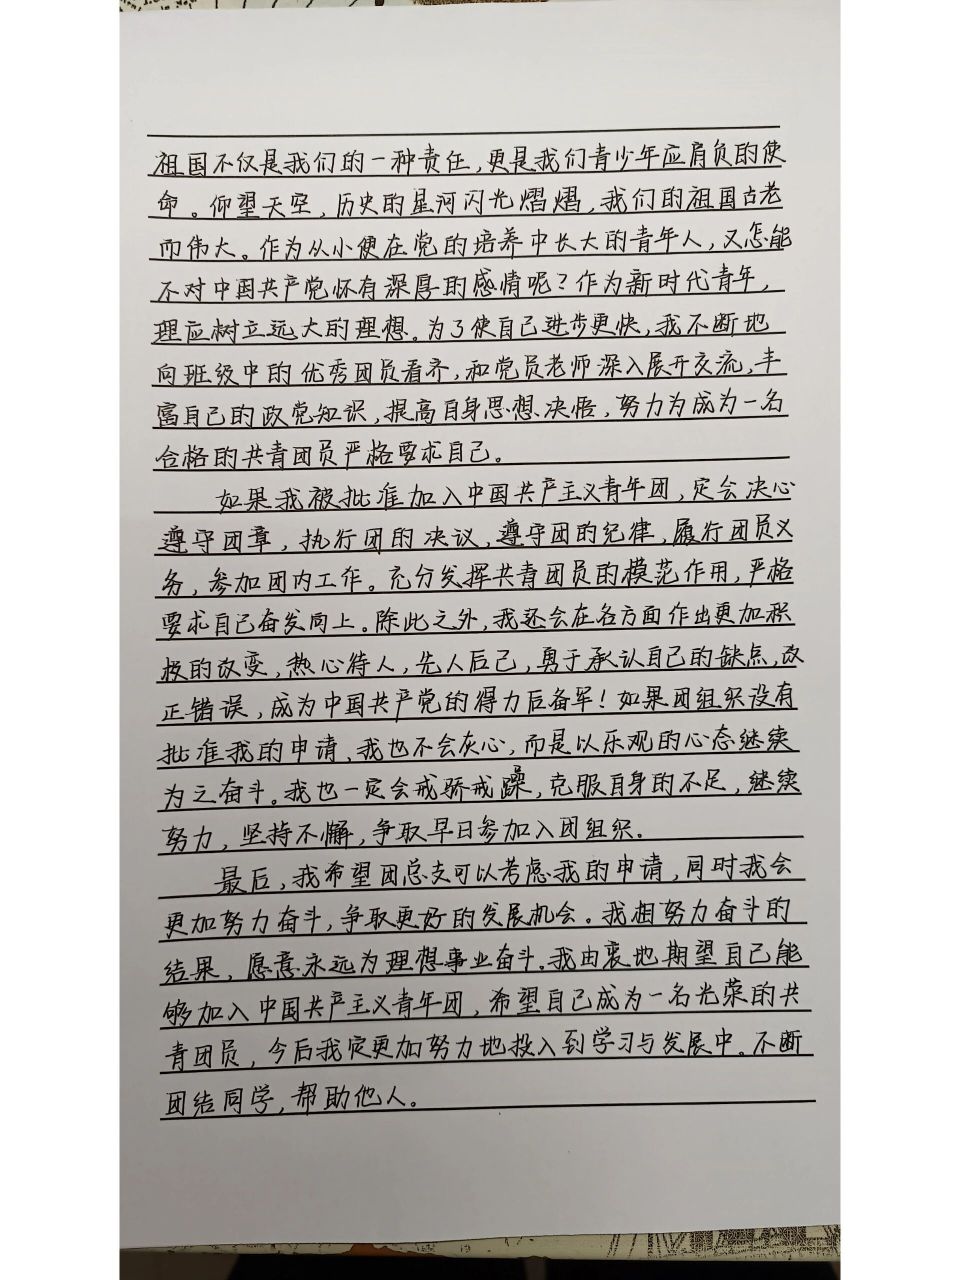 祖国不仅是我们的一种责任，更是我们青少年应肩负的使
命。仰望天空，历史的星河闪光熠熠，我们的祖国古老
而伟大。作为从小便在党的培养中长大的青年人，又怎能
不对中国共产党怀有深厚的感情呢？作为新时代青年，
理应树立远大的理想。为了使自己进步更快，我不断地
向班级中的优秀团员看齐，和党员老师深入展开交流，丰
富自己的政党知识，提高自身思想决悟，努力为成为一名
合格的共青团员严格要求自己。
如果我被批准加入中国共产主义青年团，定会决心
遵守团章，执行团的决议，遵守团的纪律，履行团员义
务，参加团内工作。充分发挥共青团员的模范作用，严格
要求自己奋发向上。除此之外，我还会在各方面作出更加积
极的改变，热心待人，先人后己，勇于承认自己的缺点，改
正错误，成为中国共产党的得力后备军！如果团组织没有
批准我的申请、我也不会灰心，而是以乐观的心态继续
为之奋斗。我也一定会戒骄戒躁，克服自身的不足，继续
努力，坚持不懈，争取早日参加入团组织.
最后，我希望团总支可以考虑我的申请，同时我会
更加努力奋斗，争取更好的发展机会。我相努力奋斗的
结果，愿意永远为理想事业奋斗。我由衷地期望自己能
够加入中国共产主义青年团，希望自己成为一名光荣的共
青团员，今后我定更加努力地投入到学习与发展中。不断
团结同学，帮助他人。